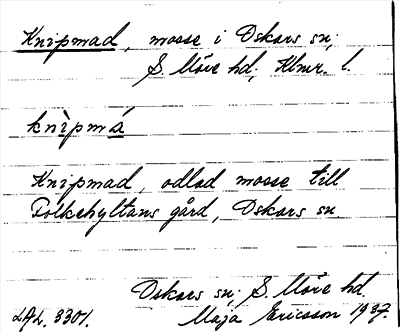 Knipmad, mosse i Oskars sn;
S. Möre hd; Klmr. l.
knìpmá
Knipmad, odlad mosse till
Folkehyltans gård, Oskars sn.
Oskars sn; S. Möre hd.
LAL. 3301. Maja Ericsson 1937.